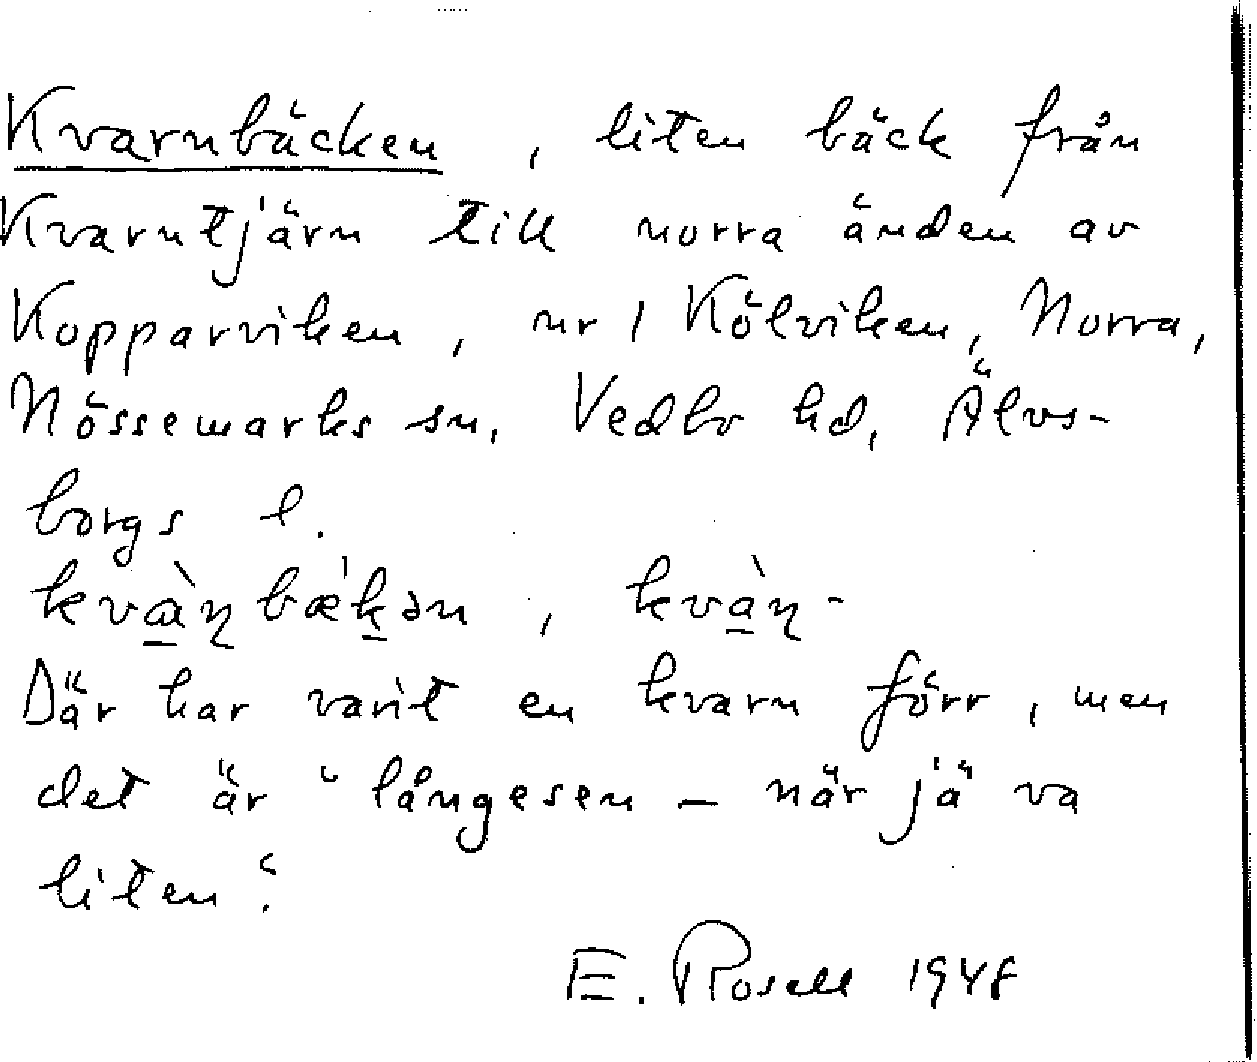 Kvarnbäcken, liten bäck från
Kvarntjärn till norra änden av
Kopparviken, nr 1 Kölviken, Norra,
Nössemarks sn, Vedbo hd, Älvs-
borgs l.
kvæ̀ɳbæ'kən, kvàɳ-
Där har varit en kvarn förr, men
det är "långesen – när jä va
liten".
E. Rosell 1948